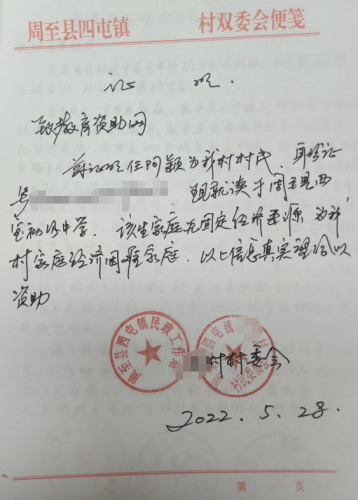 周至县四屯镇 村双委会便笺
证 明
致教育资助网
兹证明任阿颖为我村村民，身份证
号 现就读于周至县西
宝初级中学。该生家庭无固定经济来源，为我
村家庭经济困难家庭。以上信息真实望给以
资助
周至县四屯镇民政工作
周至县四屯镇 村村民委员会
村村委会
2022.5.28.
第 页